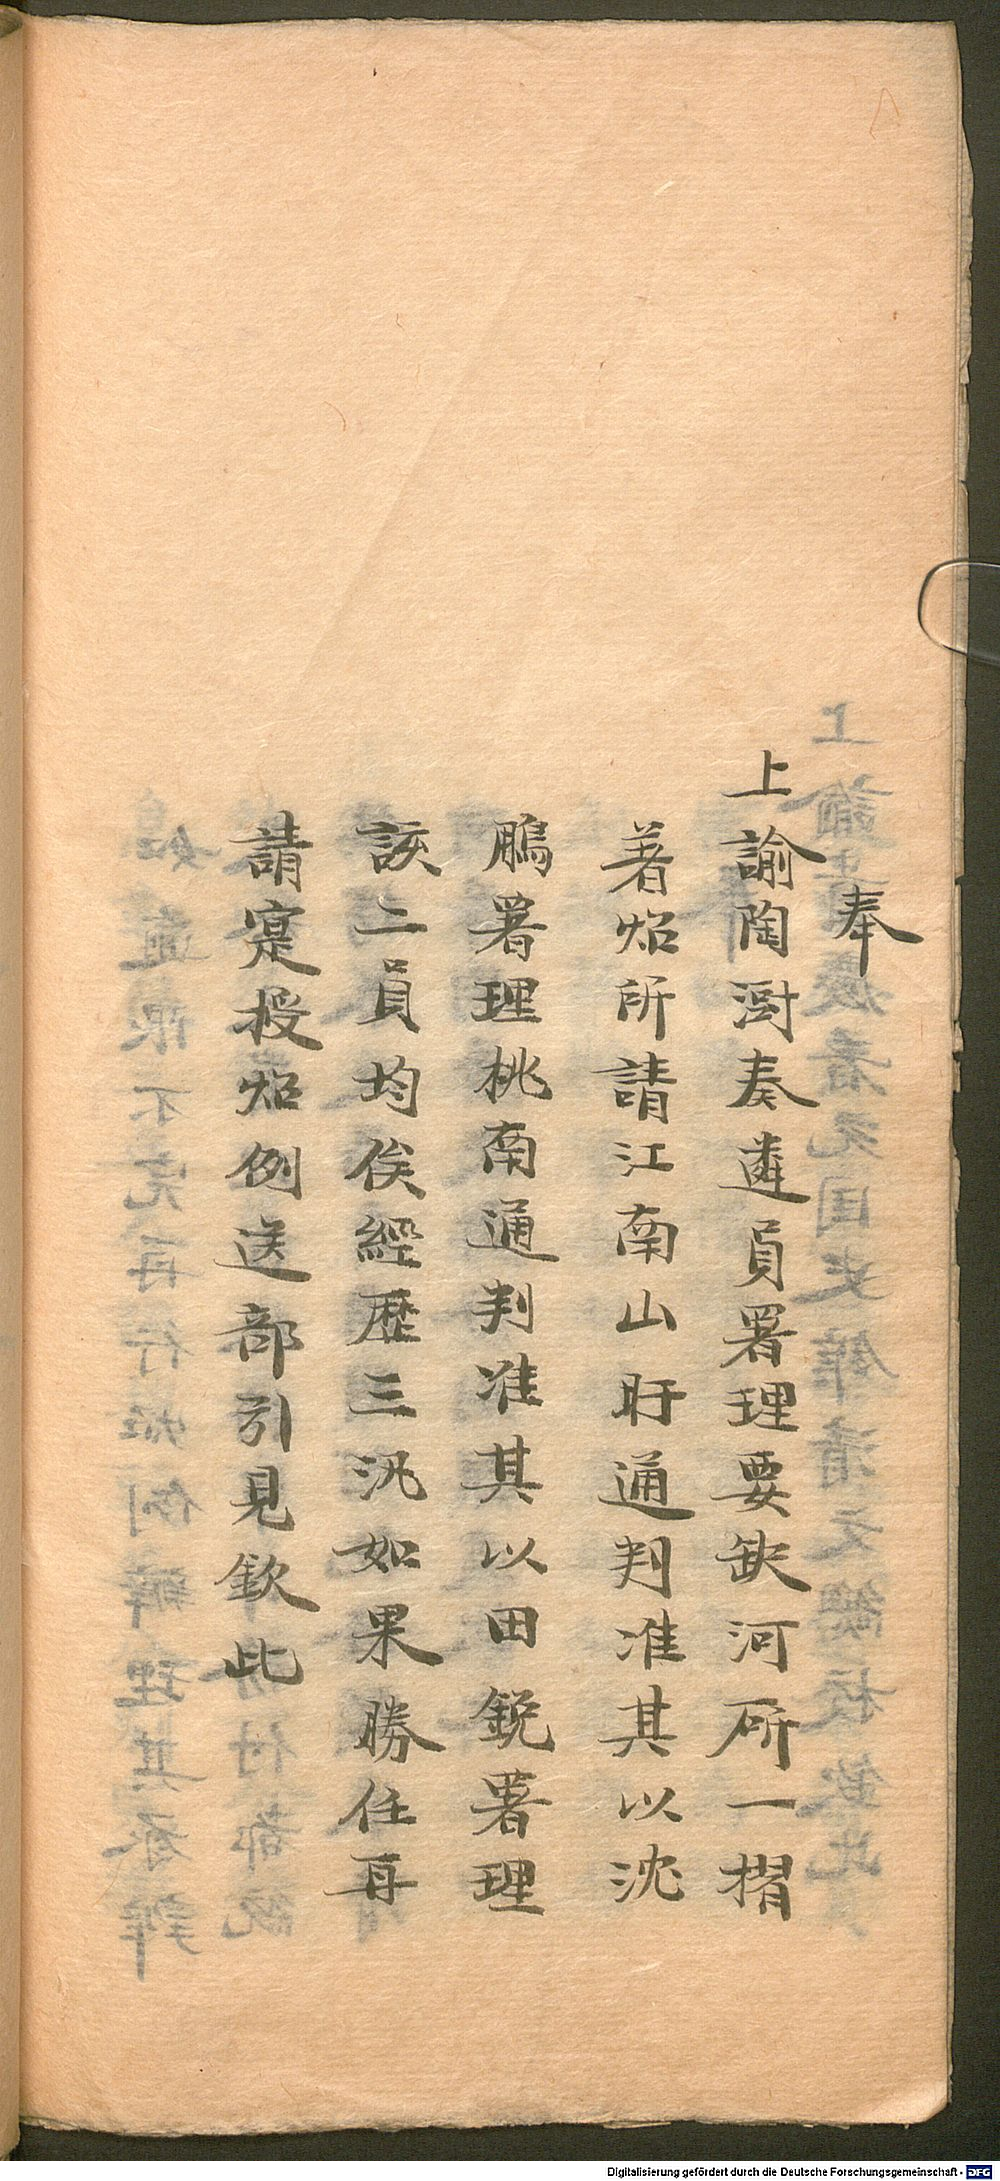 奉
上諭陶澍奏遴員署理要缺河所一摺
著炤所請江南山盱通判准其以沈
鵰署理桃南通判准其以田銳署理
該二員均俟經歷三汛如果勝任再
請寔授炤例送部引見欽此
Digitalisierung gefördert durch die Deutsche Forschungsgemeinschaft - DFG